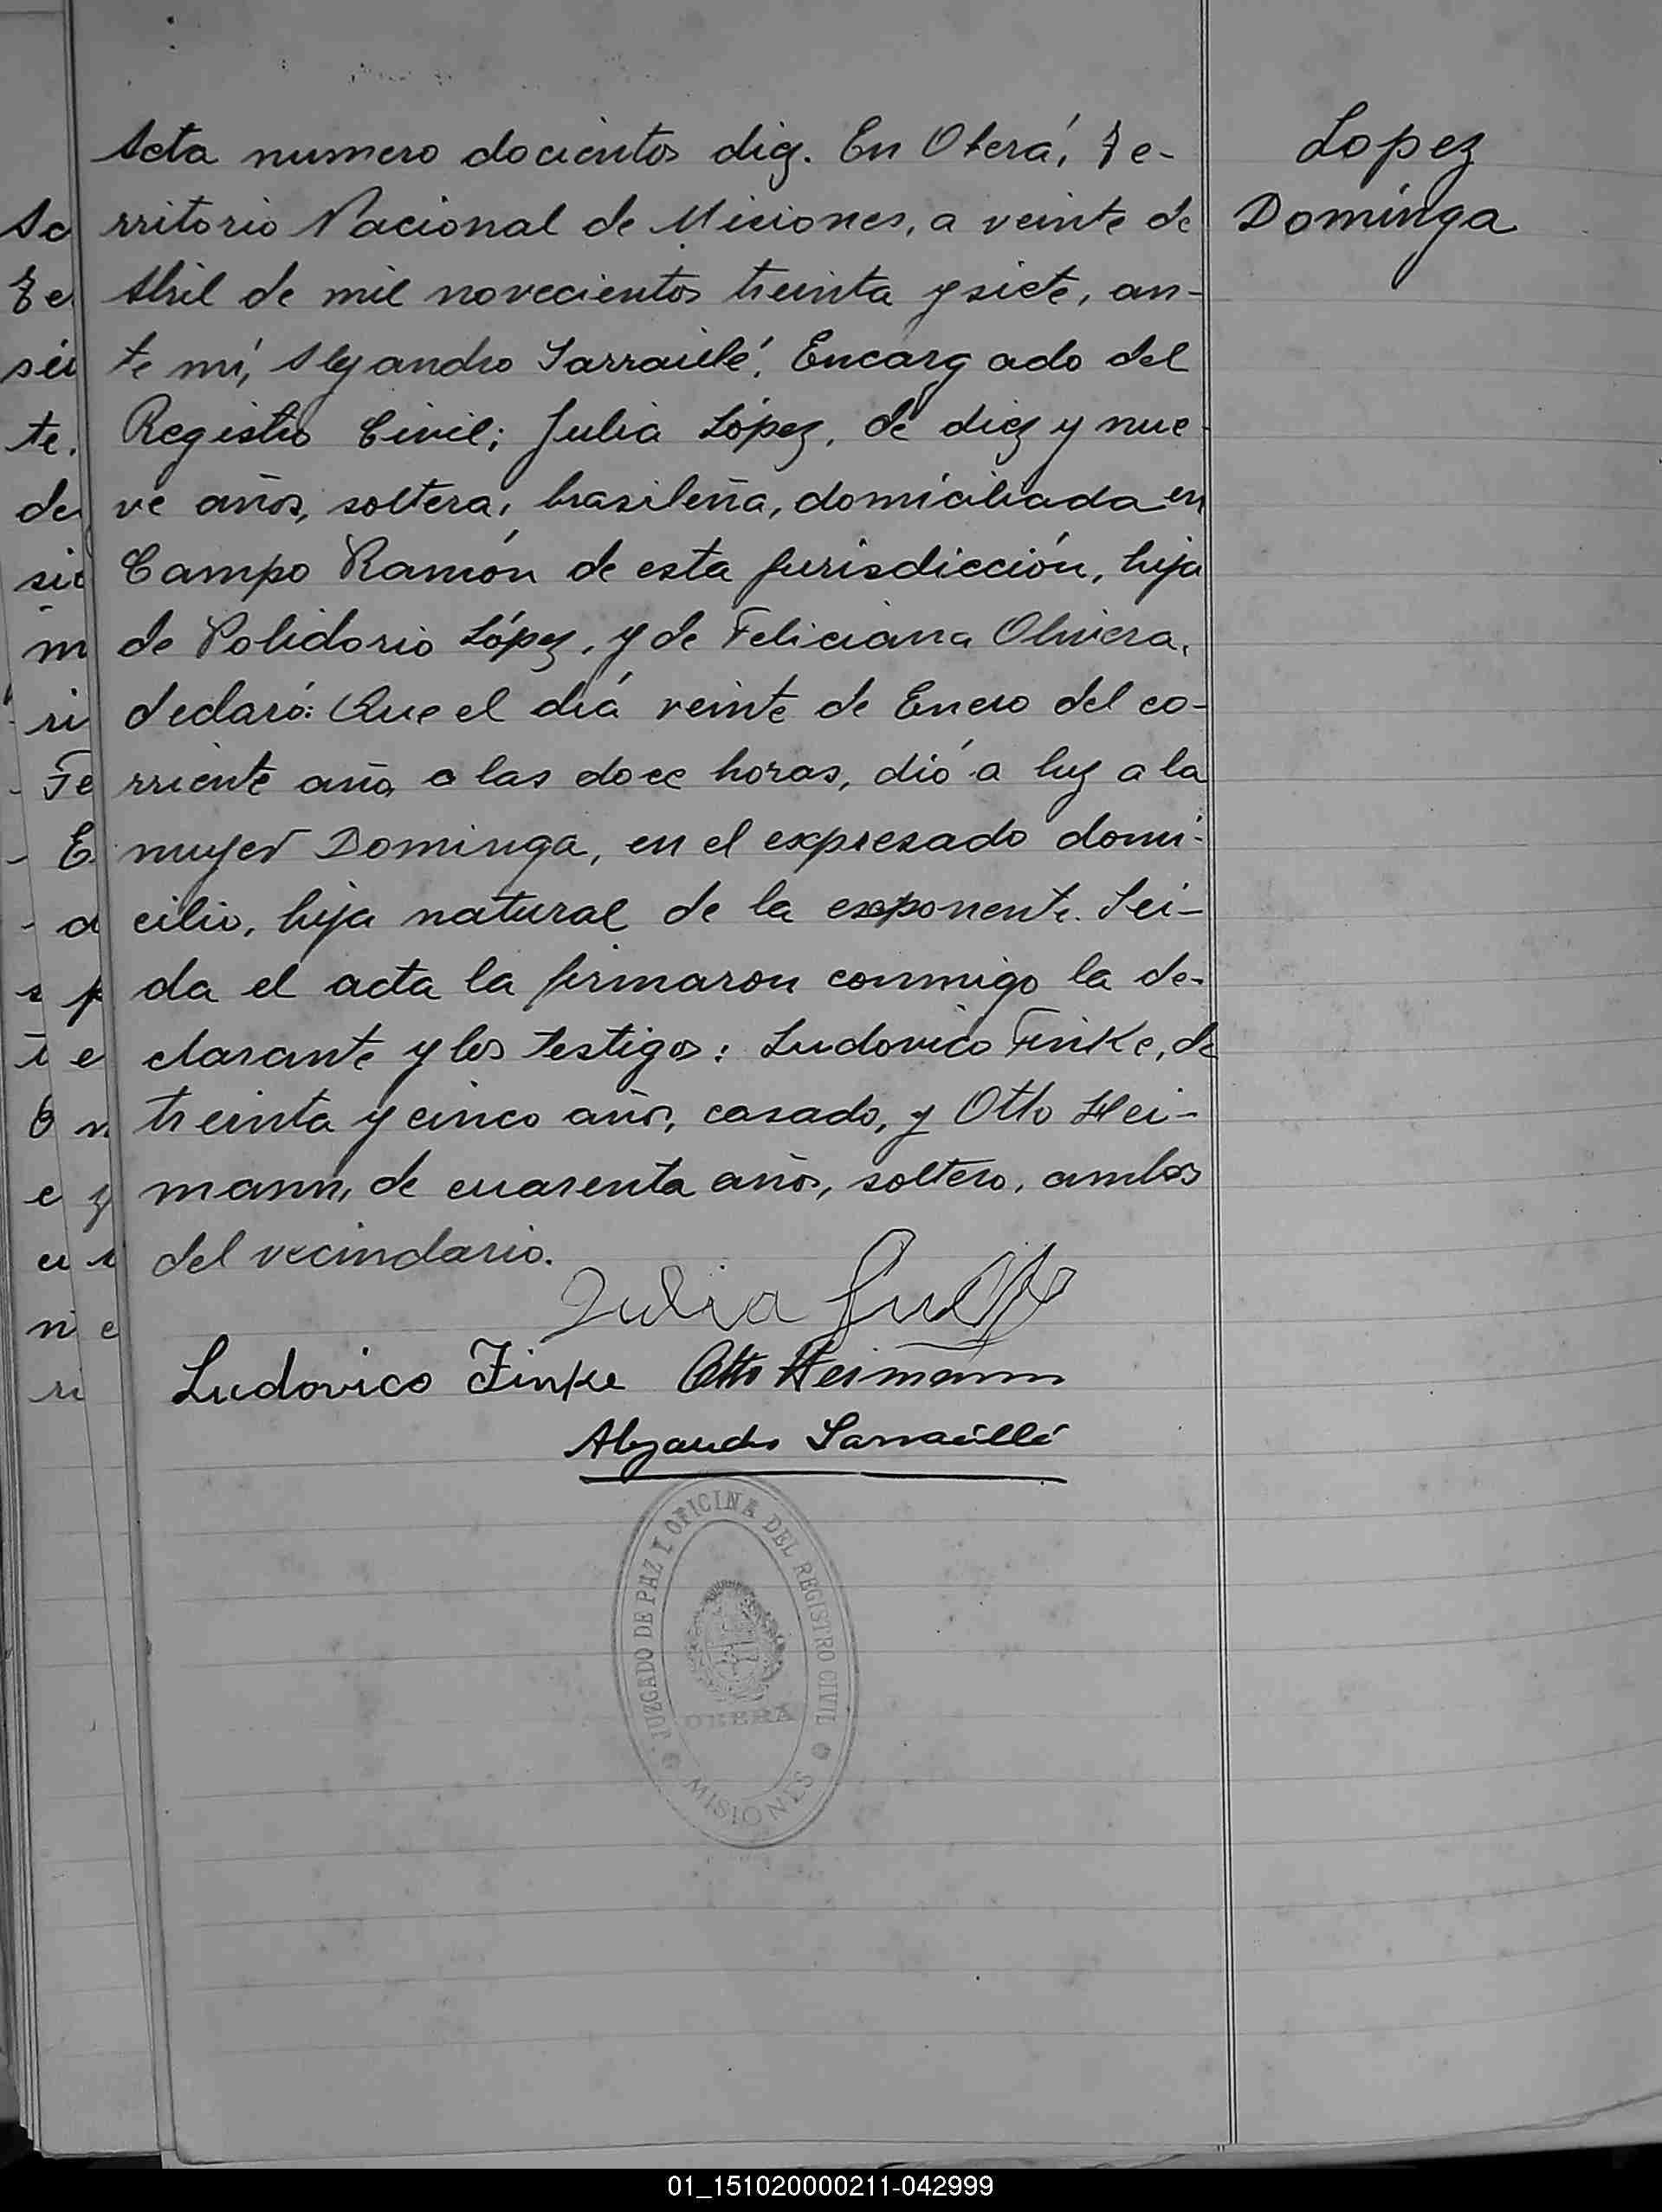 Acta numero docientos diez. En Oberá, Te-
rritorio Nacional de Misiones, a veinte de
Abril de mil novecientos treinta y siete, an-
te mí, Alejandro Sarraillé, Encargado del
Registro Civil; Julia López, de diez y nue-
ve años, soltera, brasileña, domiciliada en
Campo Ramón de esta jurisdicción, hija
de Polidorio López, y de Feliciana Oliviera,
declaró: Que el día veinte de Enero del co-
rriente año, a las doce horas, dió a luz a la
mujer Dominga, en el expresado domi-
cilio, hija natural de la exponente. Lei-
da el acta la firmaron conmigo la de-
clarante y los testigos: Ludovico Finke, de
treinta y cinco años, casado, y Otto Hei-
mann, de cuarenta años, soltero, ambos
del vecindario.
Julia
Ludovico Finke Otto Heimann
Alejandro Sarraillé
JUZGADO DE PAZ Y OFICINA DEL REGISTRO CIVIL
OBERÁ
MISIONES
Lopez
Dominga
01_151020000211-042999